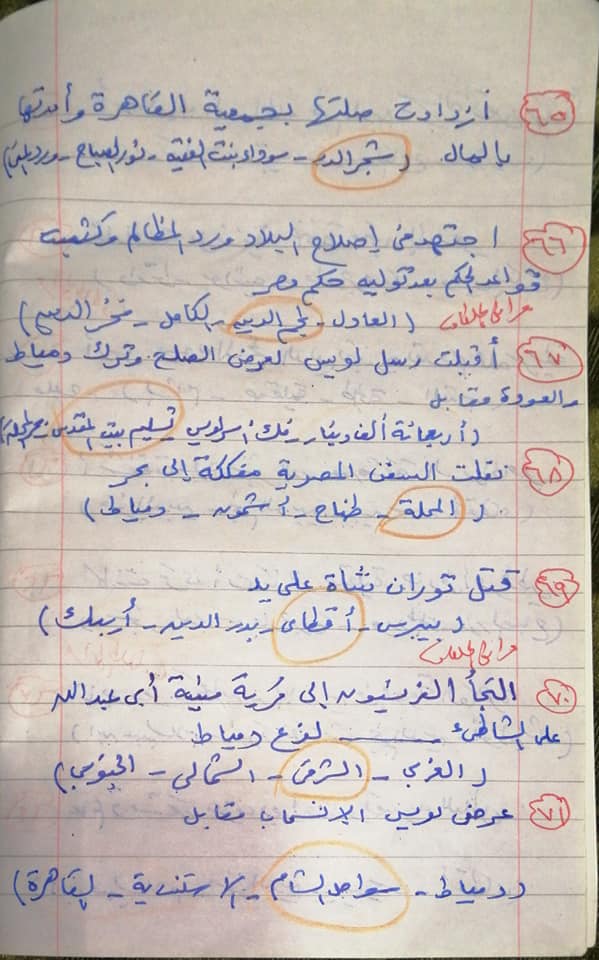 ٦٥ ازدادت صلتها بجمعية القاهرة وأمدتها
بالمال (شجر الدر - سوداء بنت الفقيه - نور الصباح - ورد المنى)
٦٦ اجتهد فى إصلاح البلاد ورد المظالم وتثبيت
قواعد الحكم بعد توليه حكم مصر
(العادل - نجم الدين - الكامل - فخر الدين)
٦٧ أقبلت رسل لويس لعرض الصلح وترك دمياط
والعودة مقابل
(أربعمائة ألف دينار - فك أسر لويس - تسليم بيت المقدس -
٦٨ نقلت السفن المصرية مفككة إلى بحر
(المحلة - طناح - أشمون - دمياط)
٦٩ قتل توران شاة على يد
(بيبرس - أقطاى - بدر الدين - أيبك)
٧٠ التجأ الفرنسيون إلى قرية منية أبى عبد الله
على الشاطئ ــــــــ لفرع دمياط
(الغربي - الشرقى - الشمالي - الجنوبي)
٧١ عرض لويس الانسحاب مقابل
(دمياط - سواحل الشام - الاسكندرية - القاهرة)